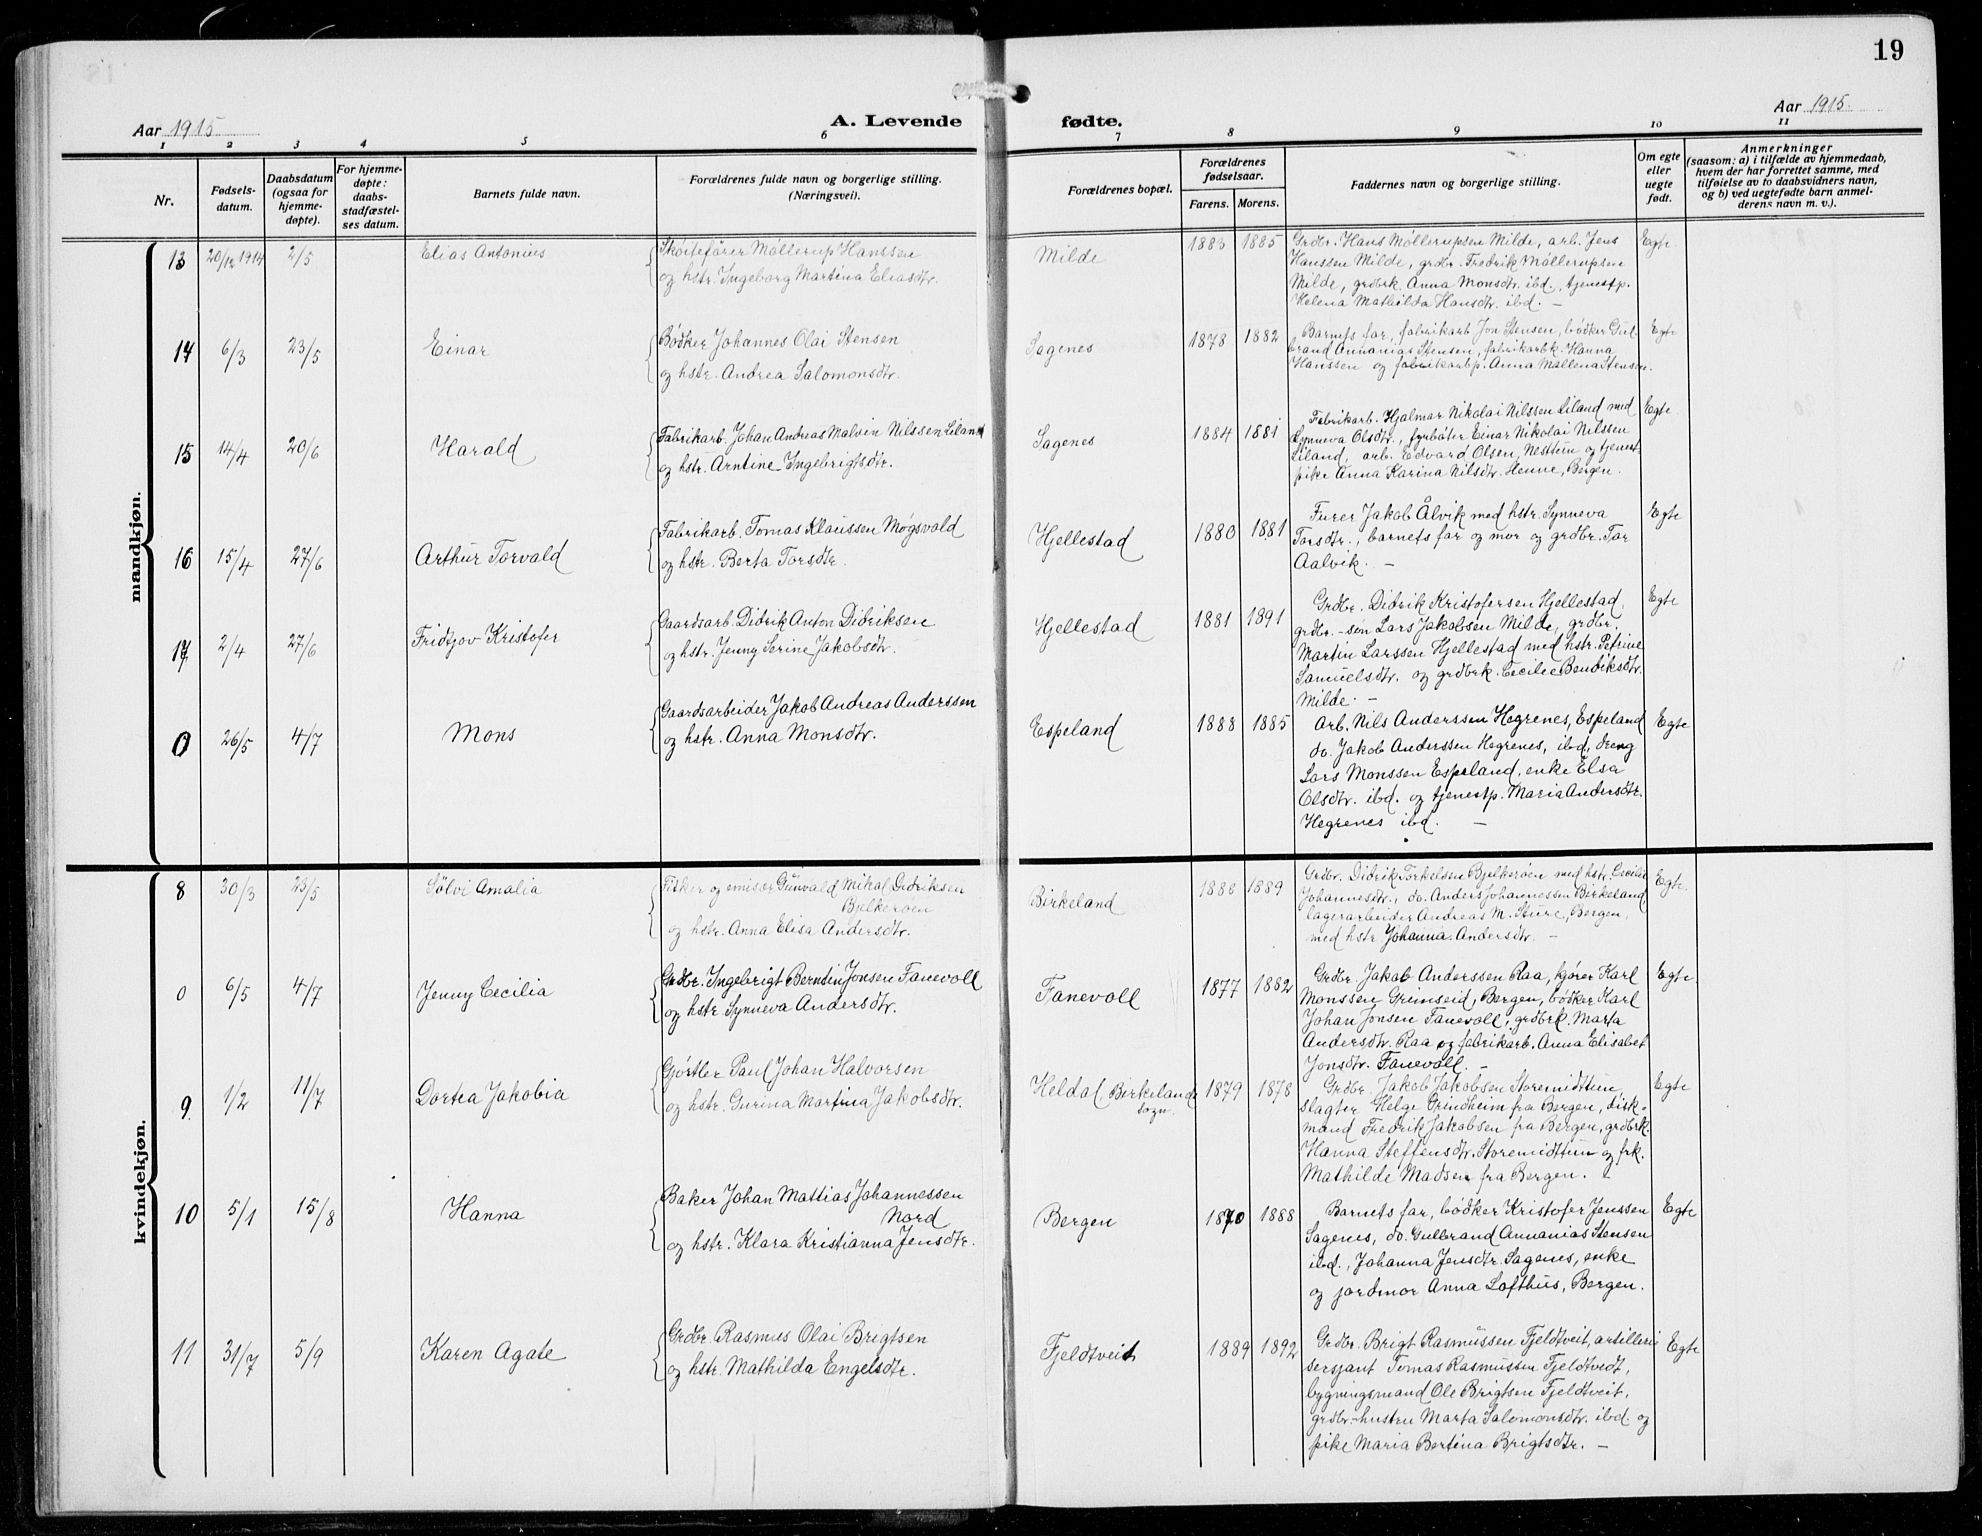 19
Aar 1915
A. Levende fødte.
Aar 1915.
1 2 3 4 5 6 7 8 9 10 11
Nr.
Fødsels-
datum.
Daabsdatum
(ogsaa for
hjemme-
døpte).
For hjemme-
døpte:
daabs-
stadfæstel-
ses datum.
Barnets fulde navn.
Forældrenes fulde navn og borgerlige stilling.
(Næringsvei).
Forældrenes bopæl.
Forældrenes
fødselsaar.
Farens. Morens.
Faddernes navn og borgerlige stilling.
Om egte
eller
uegte
født.
Anmerkninger
(saasom: a) i tilfælde av hjemmedaab,
hvem der har forrettet samme, med
tilføielse av to daabsvidners navn,
og b) ved uegtefødte barn anmel-
derens navn m. v.).
mandkjøn.
13 20/12 1914 2/5 Elias Antonius
Skøitefører Møllerup Hanssen
og hstr. Ingeborg Martina Eliasdtr.
Milde 1883 1885
Grdbr. Hans Møllerupsen Milde, arb. Jens
Hanssen Milde, grdbr. Fredrik Møllerupsen
Milde, grdbrk. Anna Monsdtr. ibd., tjenestp.
Helena Mathilda Hansdtr. ibd. —
Egte
14 6/3 23/5 Einar
Bødker Johannes Olai Stensen
og hstr. Andrea Salomonsdtr.
Sagenes 1878 1882
Barnets far, fabrikarb. Jon Stensen, bødker Gul-
brand Annanias Stensen, fabrikarbk. Hanna
Hanssen og fabrikarbp. Anna Mallena Stensen.
Egte
15 14/4 20/6 Harald
Fabrikarb. Johan Andreas Malvin Nilssen Liland
og hstr. Arntine Ingebrigtsdtr.
Sagenes 1884 1881
Fabrikarb. Hjalmar Nikolai Nilssen Liland med
Synneva Olsdtr., fyrbøter Einar Nikolai Nilssen
Liland, arb. Edvard Olsen, Nesttun og tjenest-
pike Anna Karina Nilsdtr. Henne, Bergen.
Egte
16 15/4 27/6 Arthur Torvald
Fabrikarb. Tomas Klaussen Møgsvald
og hstr. Berta Torsdtr.
Hjellestad 1880 1881
Furer Jakob Ålvik med hstr. Synneva
Torsdtr., barnets far og mor og grdbr. Tor
Aalvik. —
Egte
17 2/4 27/6 Fridtjov Kristofer
Gaardsarb. Didrik Anton Didriksen
og hstr. Jenny Serine Jakobsdtr.
Hjellestad 1881 1891
Grdbr. Didrik Kristofersen Hjellestad,
grdbr.-søn Lars Jakobsen Milde, grdbr.
Martin Larssen Hjellestad med hstr. Petrine
Samuelsdtr. og grdbrk. Cecilie Bendiksdtr.
Milde. —
Egte
0 26/5 4/7 Mons
Gaardsarbeider Jakob Andreas Anderssen
og hstr. Anna Monsdtr.
Espeland 1888 1885
Arb. Nils Anderssen Hegrenes, Espeland
do. Jakob Anderssen Hegrenes, ibd., dreng
Lars Monssen Espeland, enke Elsa
Olsdtr. ibd. og tjenestp. Maria Andersdtr.
Hegrenes ibd. —
Egte
kvindekjøn.
8 30/3 23/5 Sölvi Amalia
Fisker og emisær Gunvald Mikal Didriksen
Bjelkerøen
og hstr. Anna Elisa Andersdtr.
Birkeland 1888 1889
Grdbr. Didrik Torkelsen Bjelkerøen med hstr. Cecilie
Johannesdtr., do. Anders Johannessen Birkeland
lagerarbeider Andreas M. Sture, Bergen,
med hstr. Johanna Andersdtr. —
Egte.
0 6/5 4/7 Jenny Cecilia
Grdbr. Ingebrigt Berntin Jonsen Fanevoll
og hstr. Synneva Andersdtr.
Fanevoll 1877 1882
Grdbr. Jakob Anderssen Raa, kjører Karl
Monssen Grimseid, Bergen, bødker Karl
Johan Jonsen Fanevoll, grdbrk. Marta
Andersdtr. Raa og fabrikarb. Anna Elisabet
Jonsdtr. Fanevoll. —
Egte.
9 1/2 11/7 Dortea Jakobia
Gjørtler Paul Johan Halvorsen
og hstr. Gurina Martina Jakobsdtr.
Heldal Birkelands
sogn. 1879 1878
Grdbr. Jakob Jakobsen Storemidttun,
slagter Helge Grindheim fra Bergen, disk-
mand Fredrik Jakobsen fra Bergen, grdbrk.
Hanna Steffensdtr. Storemidttun og frk.
Mathilde Madsen fra Bergen. —
Egte
10 5/1 15/8 Hanna
Baker Johan Mattias Johannessen
Nord
og hstr. Klara Kristianna Jensdtr.
Bergen 1870 1888
Barnets far, bødker Kristofer Jenssen
Sagenes, do. Gulbrand Annanias Stensen
ibd., Johanna Jensdtr. Sagenes, enke
og jordmor Anna Lofthus, Bergen.
Egte
11 31/7 5/9 Karen Agate
Grdbr. Rasmus Olai Brigtsen
og hstr. Mathilda Engelsdtr.
Fjeldtveit 1889 1892
Grdbr. Brigt Rasmussen Fjeldtveit, artilleri
sersjant Tomas Rasmussen Fjeldtvedt,
bygningsmand Ole Brigtsen Fjeldtveit,
grdbr-hustru Marta Salomonsdtr. ibd. og
pike Maria Bertina Brigtsdtr. —
Egte